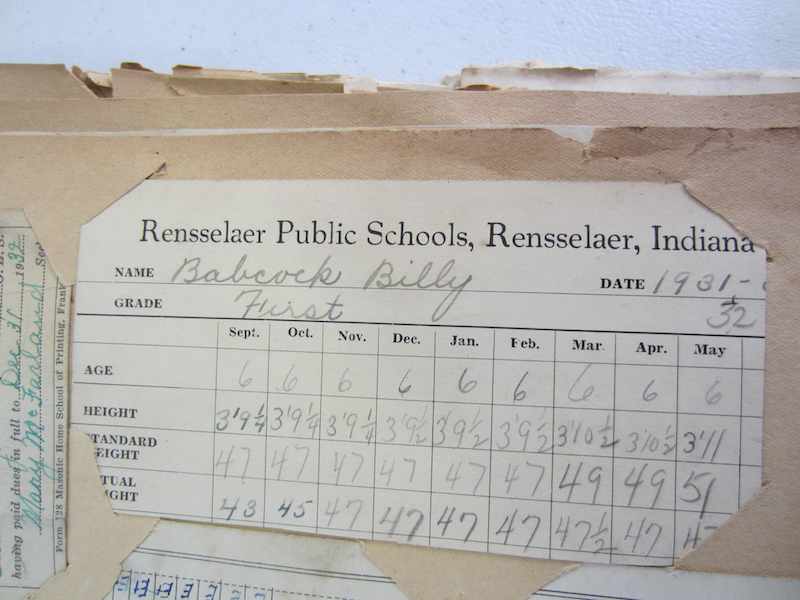 Rensselaer Public Schools, Rensselaer, Indiana
NAME Babcock Billy DATE 1931-
32
GRADE First
Sept. Oct. Nov. Dec. Jan. Feb. Mar. Apr. May
AGE 6 6 6 6 6 6 6 6 6
HEIGHT 3'9 1/4 3'9 1/4 3'9 1/4 3'9 1/2 3'9 1/2 3'9 1/2 3'10 1/2 3'10 1/2 3'11
STANDARD
EIGHT 47 47 47 47 47 47 49 49 51
TUAL
IGHT 43 45 47 47 47 47 47 1/2 47
having paid dues in full to Dec 31, 1932
Mary McFarland Sec
Form 128 Masonic Home School of Printing, Frank